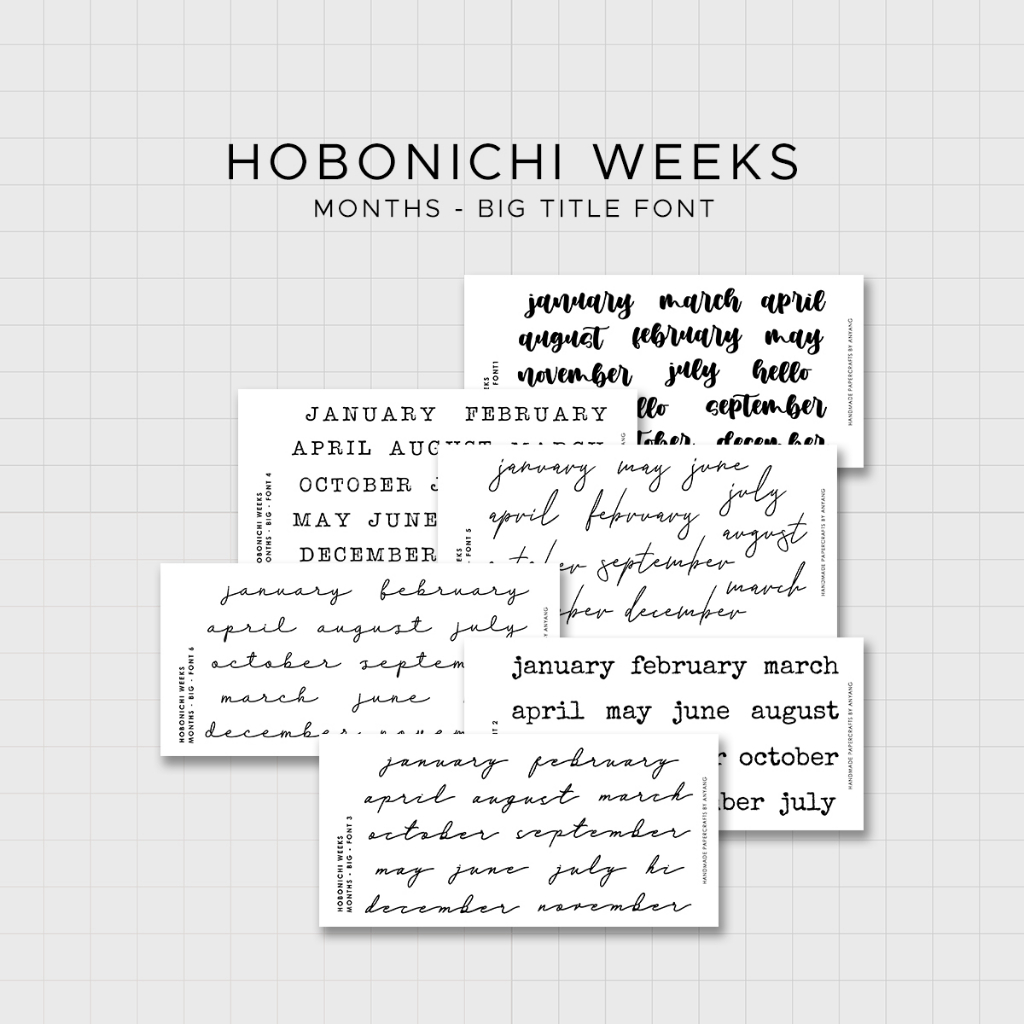 HOBONICHI WEEKS
MONTHS - BIG TITLE FONT
january march april
august february may
november july hello
september
december
FONT1
HANDMADE PAPERCRAFTS BY ANYANG
JANUARY FEBRUARY
APRIL MARCH
OCTOBER
MAY JUNE
DECEMBER
HOBONICHI WEEKS
MONTHS - BIG - FONT 4
january may june
july
april february
august
september
march
december
FONT 5
HANDMADE PAPERCRAFTS BY ANYANG
january february
april august july
october
march june
december
HOBONICHI WEEKS
MONTHS - BIG - FONT 6
ANYANG
january february march
april may june august
october
july
HANDMADE PAPERCRAFTS BY ANYANG
january february
april august march
october september
may june july hi
december november
HOBONICHI WEEKS
MONTHS - BIG - FONT 3
HANDMADE PAPERCRAFTS BY ANYANG